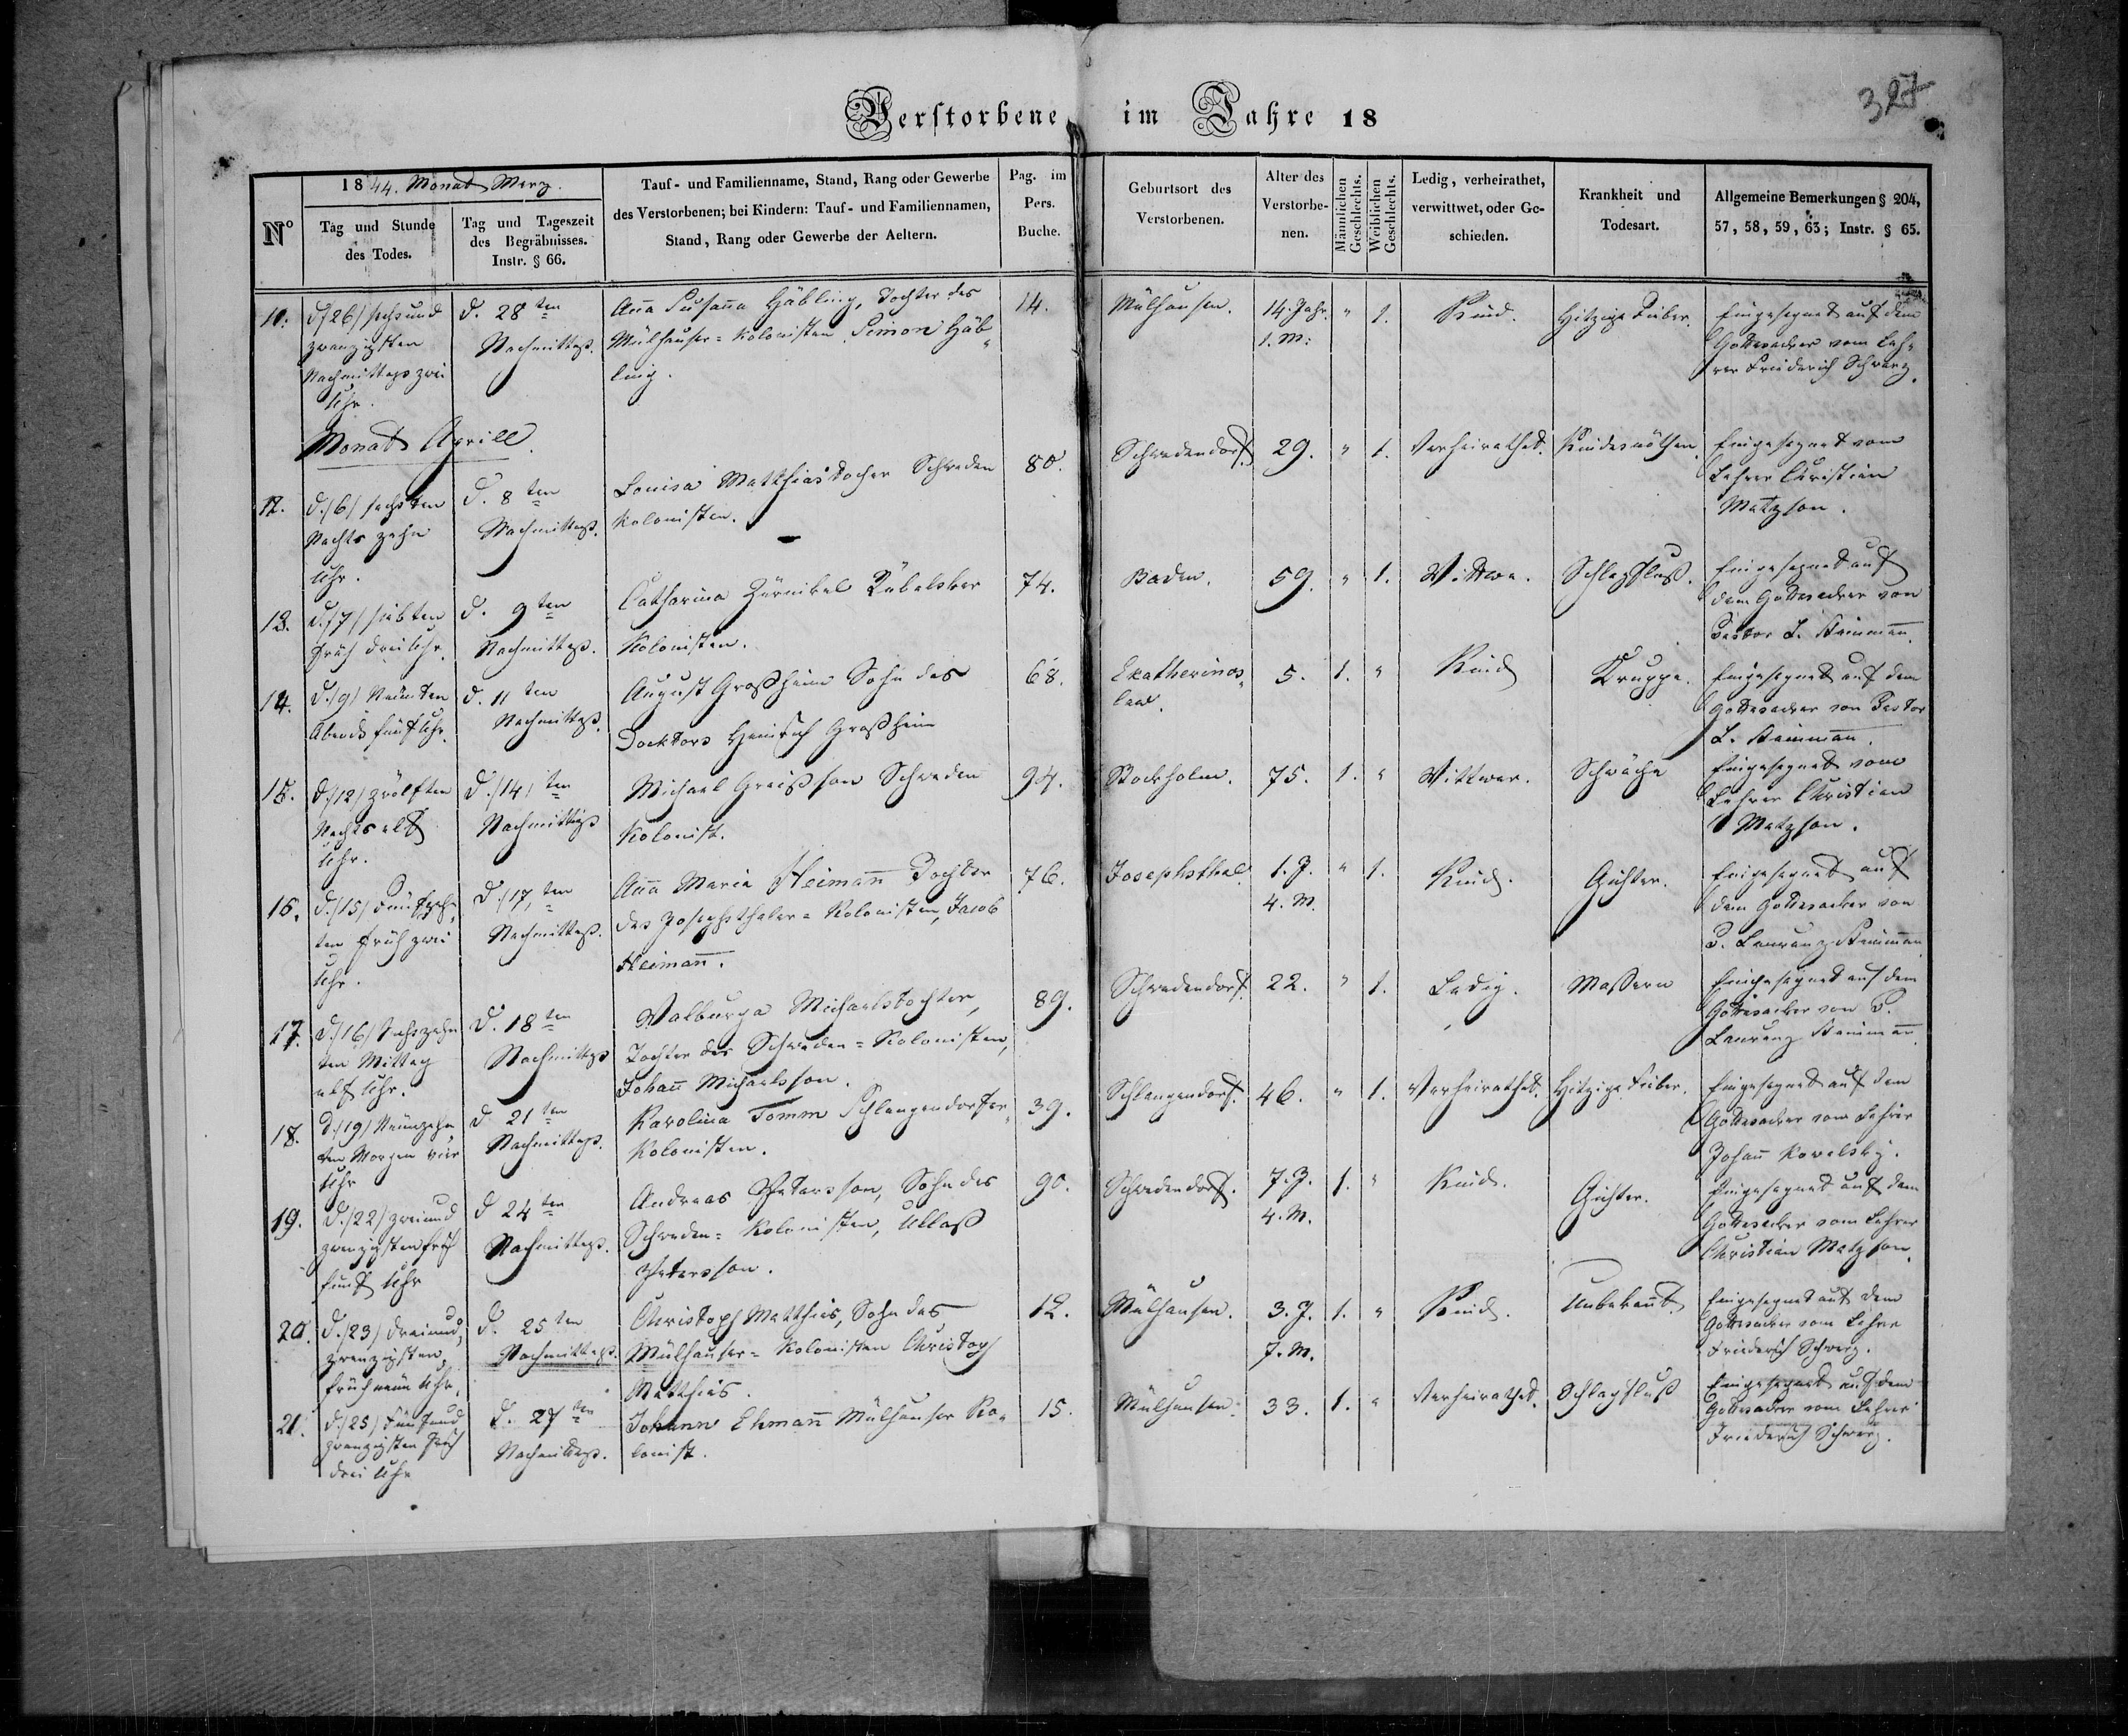 Verstorbene im Jahre 18
327
1844. Monat Merz.
Nº
Tag und Stunde
des Todes.
Tag und Tageszeit
des Begräbnisses.
Instr. § 66.
Tauf- und Familienname, Stand, Rang oder Gewerbe
des Verstorbenen; bei Kindern: Tauf- und Familiennamen,
Stand, Rang oder Gewerbe der Aeltern.
Pag. im
Pers.
Buche.
Geburtsort des
Verstorbenen.
Alter des
Verstorbe-
nen.
Männlichen
Geschlechts.
Weiblichen
Geschlechts.
Ledig, verheirathet,
verwittwet, oder Ge-
schieden.
Krankheit und
Todesart.
Allgemeine Bemerkungen § 204,
57, 58, 59, 63; Instr. § 65.
d./26/ sechsund
zwanzigsten
Nachmittags zwei
Uhr.
d. 28ten
Nachmittags.
Anna Susanna Häbling, Tochter des
Mülhauser=Kolonisten Simon Häb
ling.
14.
Mülhausen.
14. Jahr.
1. M:
" 1.
Kind.
Hitzige Fieber.
Eingesegnet auf dem
Gottesacker vom Leh-
rer Friederich Schwarz.
Monat Aprill.
12.
d./6/ sechsten
Nachts zehn
Uhr.
d. 8ten
Nachmittags.
Louisa Matthiastocher Schweden
Kolonisten.
80.
Schwedendorf.
29.
" 1.
Verheirathet.
Kindesnöthen.
Eingesegnet vom
Lehrer Christian
Matzson.
13.
d./7/ siebten
früh drei Uhr.
d. 9ten
Nachmittags.
Catharina Zürnikel
Kolonisten.
74.
Baden.
59.
" 1.
Wittwe.
Schlagfluß.
Eingesegnet auf
dem Gottesacker von
Pastor L.
14.
d./9/ Neünten
Abends fünf Uhr.
d. 11ten
Nachmittags.
August Großheim Sohn des
Docktors Heinrich Großheim
68.
Ekatherinos-
law.
5.
1. "
Kind
Kruppe.
Eingesegnet auf dem
Gottesacker von Pastor
L.
15.
d./12/ zwölften
Nachts elf
Uhr.
d./14/ten
Nachmittags
Michael Greisson Schweden
Kolonist.
94.
Stockholm.
75.
1. "
Wittwer.
Schwäche
Eingesegnet vom
Lehrer Christian
Matzson.
16.
d./15/ Fünfzehn-
ten früh zwei
Uhr.
d./17/ten
Nachmittags.
Anna Maria Heimann Tochter
des Josephsthaler=Kolonisten, Jacob
Heimann.
76.
Josephsthal.
1. J.
4. M.
" 1.
Kind.
Gichter.
Eingesegnet auf
dem Gottesacker von
P. Laurenz
17.
d./16/ Sechszehn
ten Mittag
elf Uhr.
d. 18ten
Nachmittags
Walburga Michaelstochter,
Tochter des Schweden=Kolonisten,
Johann Michaelsson.
89.
Schwedendorf.
22.
" 1.
Ledig.
Massern
Eingesegnet auf dem
Gottesacker von P.
Laurenz
18.
d./19/ Neünzehn
ten Morgen vier
Uhr
d 21ten
Nachmittags.
Karolina Tomm Schlangendorfer-
Kolonisten.
39.
Schlangendorf.
46.
" 1.
Verheirathet.
Hitzige Fieber.
Eingesegnet auf dem
Gottesacker vom Lehrer
Johann Kowelsky.
19.
d./22/ zweiund
zwanzigsten früh
fünf Uhr
d 24ten
Nachmittags.
Andreas Petersson, Sohn des
Schweden=Kolonisten, Ullaß
Petersson.
90.
Schwedendorf.
7. J.
4. M.
1. "
Kind.
Gichter.
Eingesegnet auf dem
Gottesacker vom Lehrer
Christian Matzson.
20.
d./23/ dreiund-
zwanzigsten
früh neün Uhr.
d. 25ten
Nachmittags.
Christoph Matthies, Sohn des
Mülhauser=Kolonisten Christoph
Matthies.
12.
Mülhausen.
3. J.
7. M.
1. "
Kind.
Unbekannt.
Eingesegnet auf dem
Gottesacker vom Lehrer
Friederich Schwarz.
21.
d./25/ Fünfund
zwanzigsten früh
drei Uhr
d. 27ten
Nachmittags.
Johann Ehmann Mülhauser Ko-
lonist.
15.
Mülhausen.
33.
1. "
Verheirathet.
Schlagfluß
Eingesegnet auf dem
Gottesacker vom Lehrer
Friederich Schwarz.